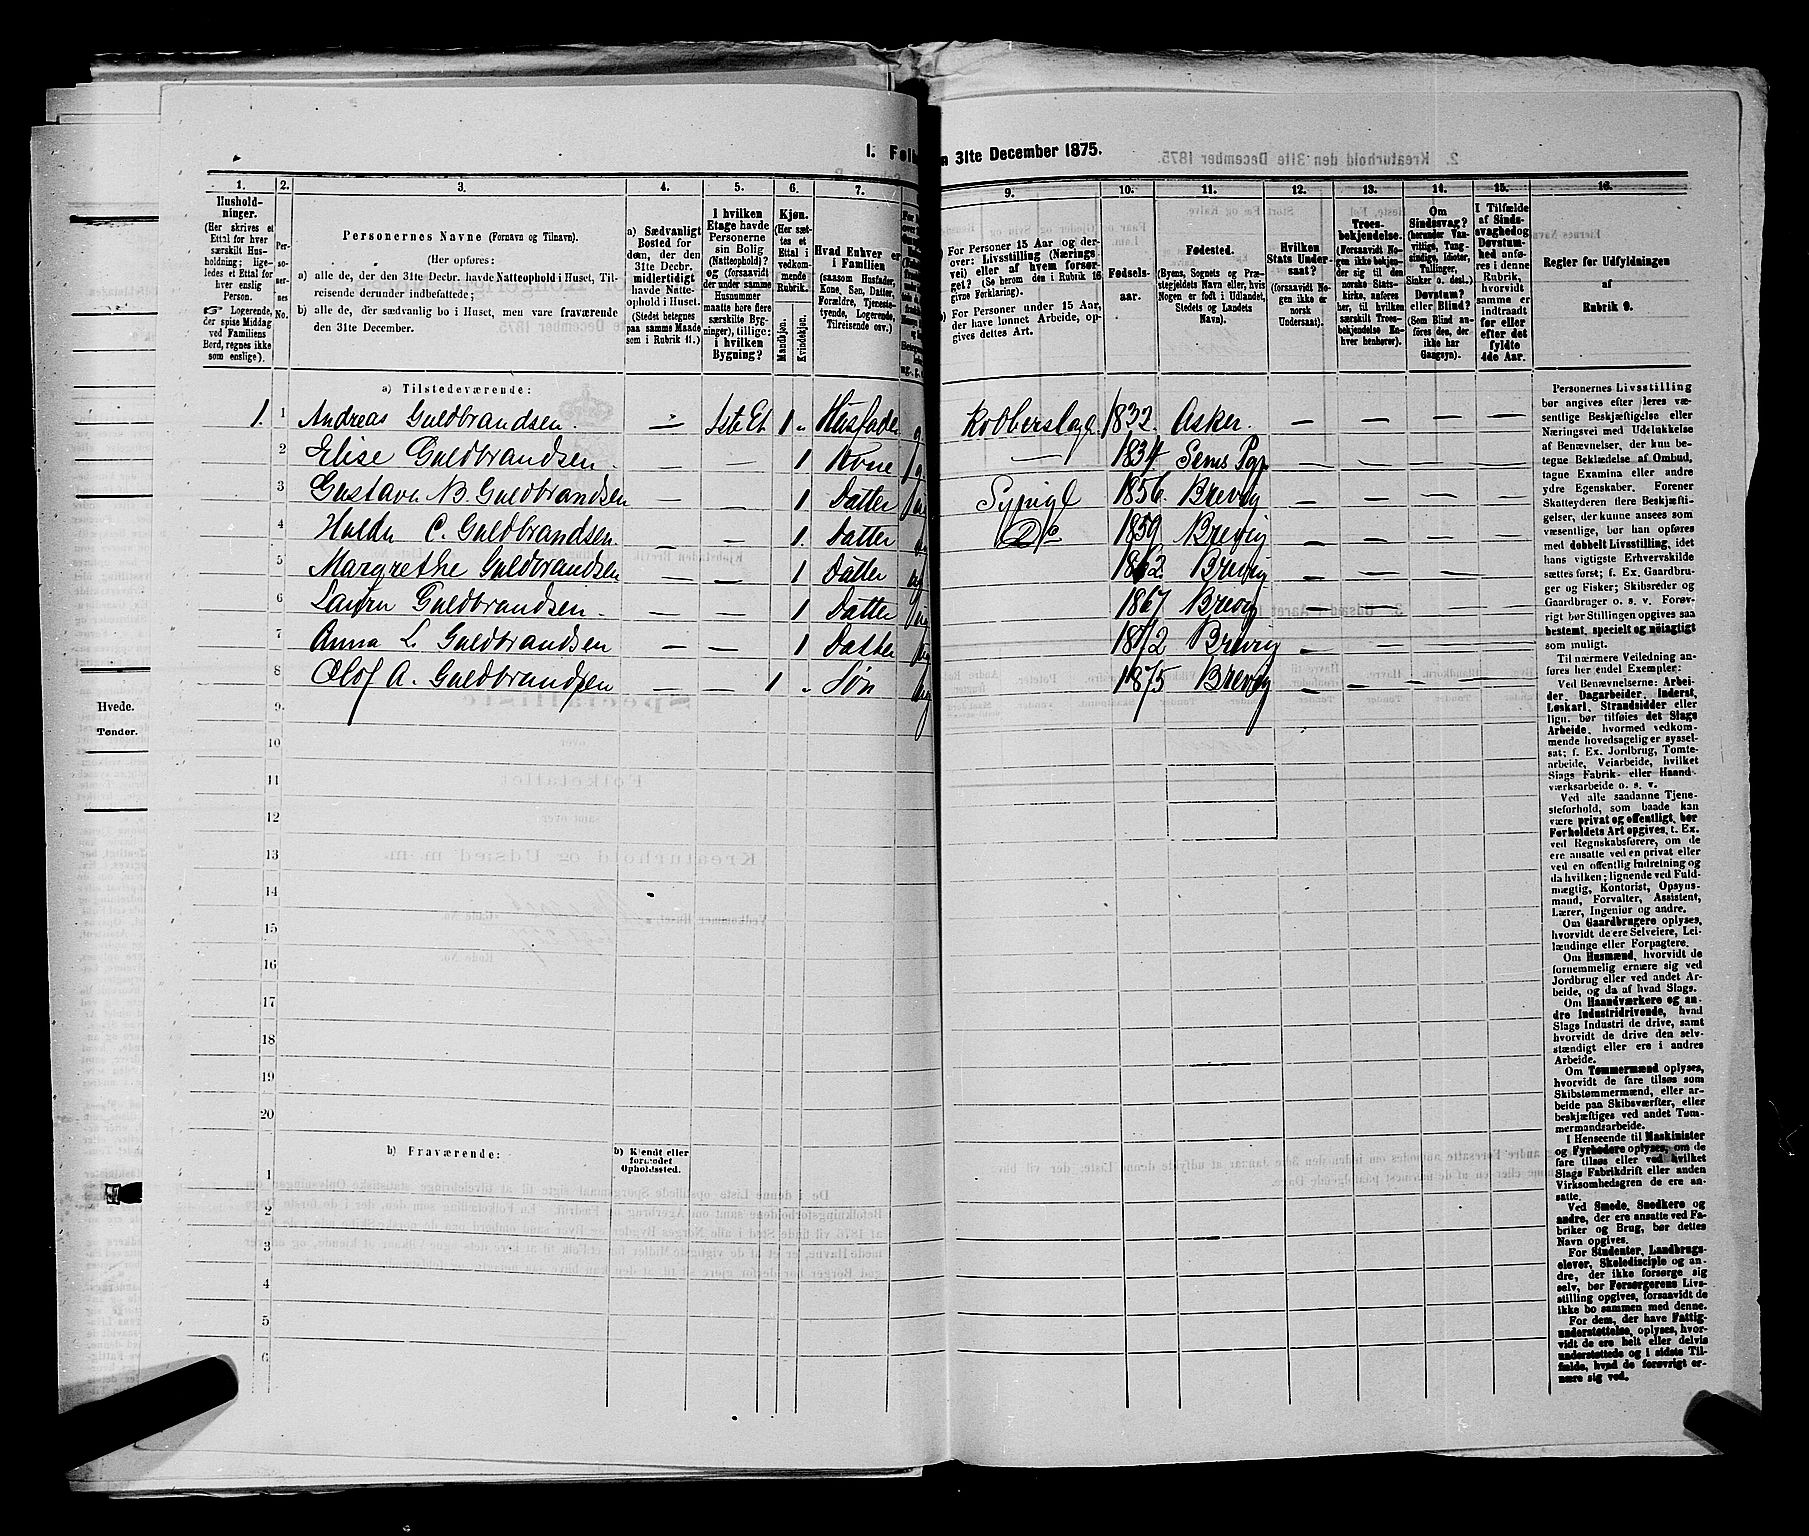 1. Folke
n 31te December 1875.
1. 2. 3. 4. 5. 6. 7.
9. 10. 11. 12. 13. 14. 15. 16.
Husholdninger.
(Her skrives et
Ettal for hver
særskilt Hus-
holdning; lige-
ledes et Ettal
for hver
enslig
Person.
☞ Logerende,
der spise Middag
ved Familiens
Bord, regnes ikke
som enslige).
Per-
so-
ner-
nes
No.
Personernes Navne (Fornavn og Tilnavn).
(Her opføres:
a) alle de, der den 31te Decbr. havde Natteophold i Huset, Til-
reisende derunder indbefattede;
b) alle de, der sædvanlig bo i Huset, men vare fraværende
den 31te December.
a) Sædvanligt
Bosted for
dem, der den
31te Decbr.
midlertidigt
havde Natte-
ophold i Huset.
(Stedet betegnes
paa samme Maade
som i Rubrik 11.)
I hvilken
Etage havde
Personerne
sin Bolig
(Natteophold)?
og (forsaavidt
der under samme
Husnummer
maatte høre flere
særskilte Byg-
ninger), tillige:
i hvilken
Bygning?
Kjøn.
(Her sæt-
tes et
Ettal i
vedkom-
mende
Rubrik.
Mandkjøn.
Kvindekjøn.
Hvad Enhver er
i Familien
(saasom Husfader,
Kone, Søn, Datter,
Forældre, Tjeneste-
tyende, Logerende,
Tilreisende osv.)
For Personer 15 Aar og der-
over: Livsstilling (Nærings-
vei) eller af hvem forsør-
get? (Se herom den i Rubrik 16
givne Forklaring).
For Personer under 15 Aar,
der have lønnet Arbeide, op-
gives dettes Art.
Fødsels-
aar.
Fødested.
(Byens, Sognets og Præ-
stegjeldets Navn eller, hvis
Nogen er født i Udlandet,
Stedets og Landets
Navn).
Hvilken
Stats Under-
saat?
(forsaavidt No-
gen ikke er
norsk
Undersaat).
Troes-
bekjendelse.
(Forsaavidt No-
gen ikke bekjen-
der sig til den
norske Stats-
kirke, anføres
her, til hvilken
særskilt Troes-
bekjendelse En-
hver henhører).
Om
Sindssvag?
(herunder Van-
vittige, Tung-
sindige, Idioter,
Tullinger,
Sinker o. desl.).
Døvstum?
eller Blind?
(Som Blind an-
føres den, der-
ikke har
Gangsyn).
I Tilfælde
af Sinds-
svaghed og
Døvstum-
hed anfø-
res i denne
Rubrik,
hvorvidt
samme er
indtraadt
før eller
efter det
fyldte
4de Aar.
Regler for Udfyldningen
af
Rubrik 9.
a) Tilstedeværende:
1. 1 Andreas Guldbrandsen. — 1ste Et 1 „ Husfader g Kobberslag. 1832. Asker. — —
2 Elise Guldbrandsen. — — 1 Kone g — 1834 Sems Pgj — — — —
3 Gustava B. Guldbrandsen — — 1 Datter ug Sypige 1856. Brevig — — — —
4 Hulda C. Guldbrandsen. — — 1. Datter ug Do 1859 Brevig — — — —
5 Margrethe Guldbrandsen — — 1 Datter ug 1862. Brevig — — — —
6 Laura Guldbrandsen. — — 1 Datter ug 1867 Brevig — — — —
7 Anna L. Guldbrandsen — — 1 Datter ug 1872 Brevig — — — —
8 Olof A. Guldbrandsen — — 1 „ Søn ug 1875 Brevig — — — —
9.
10
11
12
13
14
15
16
17
18
19
20
b) Fraværende:
b) Kjendt eller
formodet
Opholdssted.
1
2
3
4
5
6
Hvede.
Tønder.
Personernes Livsstilling
bør angives efter deres væ-
sentlige Beskjæftigelse eller
Næringsvei med Udelukkelse
af Benævnelser, der kun be-
tegne Beklædelse af Ombud,
tagne Examina eller andre
ydre Egenskaber. Forener
Skatteyderen flere Beskjæfti-
gelser, der kunne ansees som
væsentlige, bør han opføres
med dobbelt Livsstilling, idet
hans vigtigste Erhvervskilde
sættes først; f. Ex. Gaardbru-
ger og Fisker; Skibsreder og
Gaardbruger o. s. v. Forøv-
rigt bør Stillingen opgives saa
bestemt, specielt og nøiagtigt
som muligt.
Til nærmere Veiledning an-
føres her endel Exempler:
Ved Benævnelserne: Arbei-
der, Dagarbeider, Inderst,
Løskarl, Strandsidder eller
lign. bør tilføies det Slags
Arbeide, hvormed vedkom-
mende hovedsagelig er syssel-
sat; f. Ex. Jordbrug, Tomte-
arbeide, Veiarbeide, hvilket
Slags Fabrik- eller Haand-
værksarbeide o. s. v.
Ved alle saadanne Tjene-
steforhold, som baade kan
være privat og offentligt, bør
Forholdets Art opgives, t. Ex.
ved Regnskabsførere, om de
ere ansatte ved en privat eller
ved en offentlig Indretning og
da hvilken; lignende ved Fuld-
mægtig, Kontorist, Opsyns-
mand, Forvalter, Assistent,
Lærer, Ingeniør og andre.
Om Gaardbrugere oplyses,
hvorvidt de ere Selveiere, Lei-
lændinge eller Forpagtere.
Om Husmænd, hvorvidt de
fornemmelig ernære sig ved
Jordbrug eller ved andet Ar-
beide, og da af hvad Slags.
Om Haandværkere og an-
dre Industridrivende, hvad
Slags Industri de drive, samt
hvorvidt de drive den selv-
stændigt eller ere i andres
Arbeide.
Om Tømmermænd oplyses,
hvorvidt de fare tilsøs som
Skibstømmermænd, eller ar-
beide paa Skibsværfter, eller
beskjæftiges ved andet Tøm-
mermandsarbeide.
I Henseende til Maskinister
og Fyrbødere oplyses, om de
fare tilsøs eller ved hvilket
Slags Fabrikdrift eller anden
Virksomhedsgren de ere an-
satte.
Ved Smede, Snedkere og
andre, der ere ansatte ved Fa-
briker og Brug, bør dettes
Navn opgives.
For Studenter, Landbrugs-
elever, Skoledisciple og an-
dre, der ikke forsørge sig
selv, bør Forsørgerens Livs-
stilling opgives, forsaavidt de
ikke bo sammen med denne.
For dem, der have Fattig-
understøttelse, oplyses, hvor-
vidt de ere helt eller delvis
understøttede og i sidste Til-
fælde, hvad de forøvrigt er-
nære sig ved.